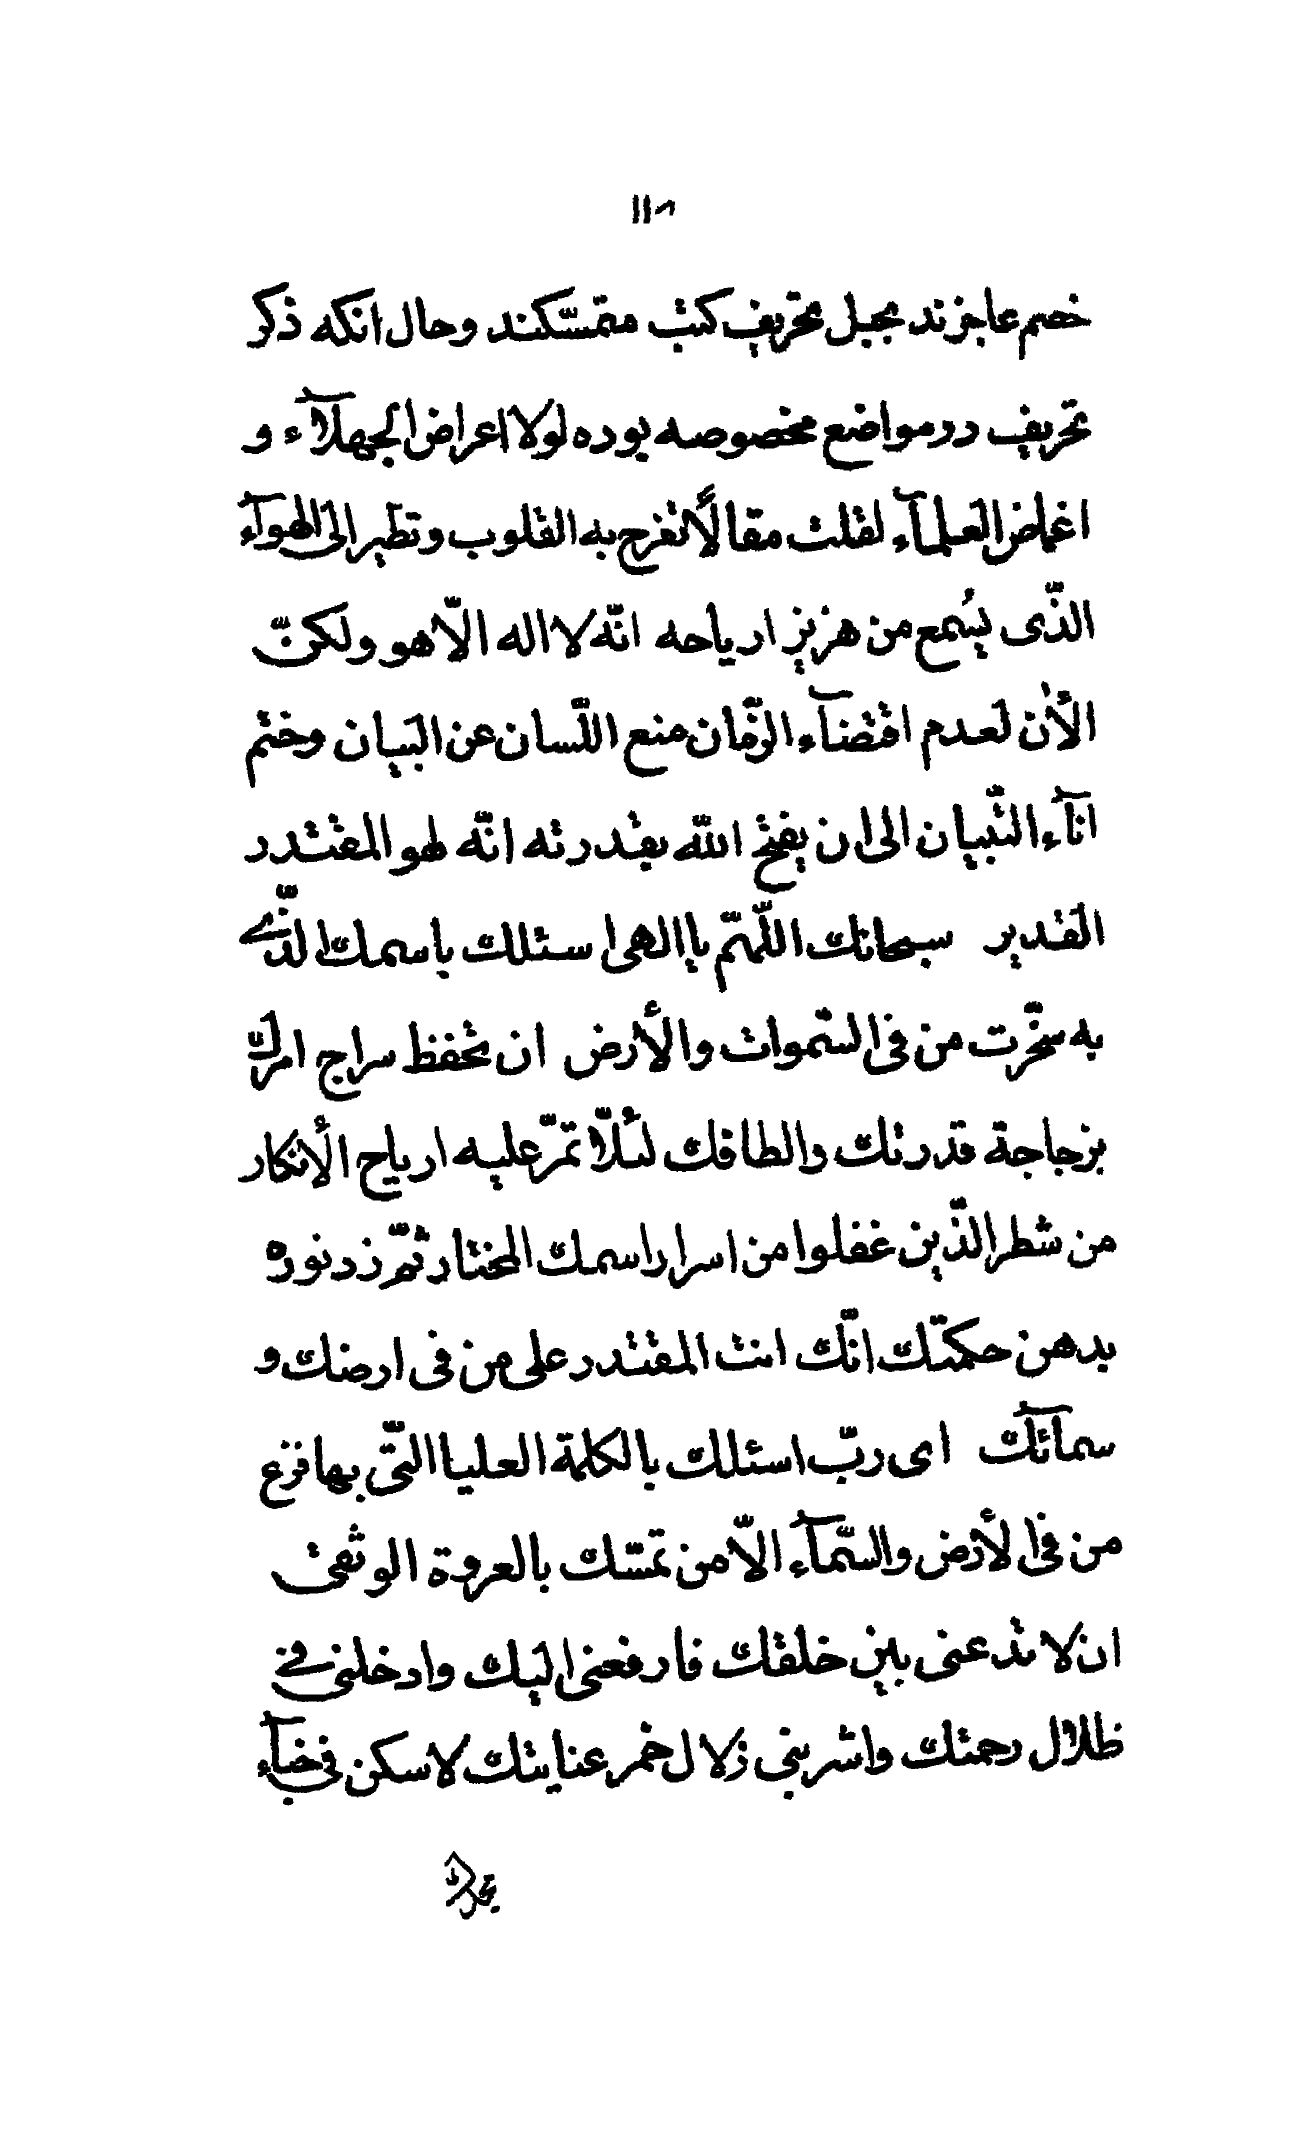 ١١٣
خصم عاجزند بحبل تحريف كتب متمسّكند وحال انكه ذكر
تحريف در مواضع مخصوصه بوده لولا اعراض الجهلآء و
اغماض العلمآء لقلت مقالاً تفرح به القلوب و تطير الى الهوآء
الّذى يسُمع من هزيز ارياحه انّه لا اله الّا هو ولكنّ
الأن لعدم اقتضآء الزّمان منع اللّسان عن البيان وختم
انآء التّبيان الى ان يفتح اللّه بقدرته انّه لهو المقتدر
القدير سبحانك اللّهمّ يا الهى اسئلك باسمك الّذى
به سخّرت من فى السّموات والأرض ان تحفظ سراج امرك
بزجاجة قدرتك والطافك لئلّا تمرّ عليه ارياح الأنكار
من شطر الّذين غفلوا من اسرار اسمك المختار ثمّ زد نوره
بدهن حكمتك انّك انت المقتدر على من فى ارضك و
سمآئك اى ربّ اسئلك بالكلمة العليا الّتى بها فزع
من فى الأرض والسّمآء الّا من تمسّك بالعروة الوثقى
ان لا تدعنى بين خلقك فارفعنى اليك وادخلنى فى
ظلال رحمتك واشربنى زلال خمر عنايتك لاسكن فى خبآء